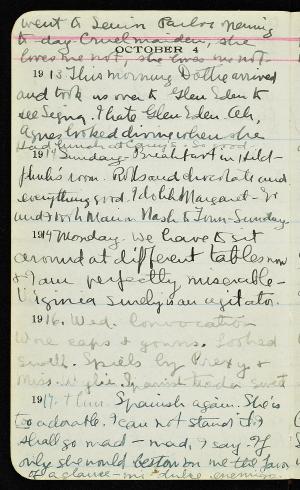 went to Senior Parlor opening
to-day. Cruel maiden, she
loves me not, she loves me not.
OCTOBER 4
1913 This morning Dottie arrived
and took us over to Glen Eden to
see Sejna. I hate Glen Eden. Oh,
Agnes looked divine when she
Had lunch at So good.
1914 Sunday - Breakfast in Hild-
room. Rolls and chocolate and
everything good. I Margaret - Jr
and to Town - Sunday.
1914 Monday. We have to sit
around at different tables now
& I am perfectly miserable -
Virginia surely is an agitator.
1916. Wed. Convocation
Wore caps & gowns. Looked
swell. Spiels by Prexy &
Miss. Spanish swell
1917. Thur. Spanish again. She's
too adorable. I can not stand it. I
shall go mad - mad, I say. If
only she would bestow on me the favor
of a glance - mi dulce enemiga.